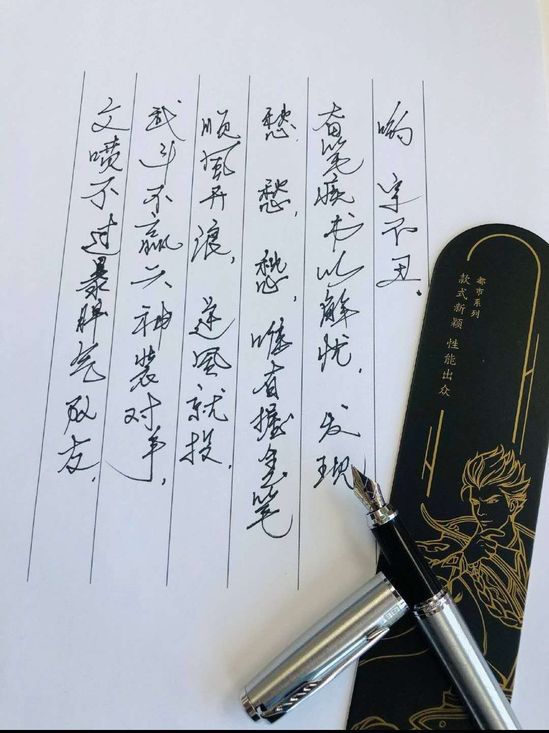 文喷不过暴脾气队友,
武斗不赢六神装对手,
顺风开浪,逆风就投,
愁,愁,愁,唯有握金笔
奋笔疾书以解忧,发现
哟 字不丑.
都市系列
款式新颖 性能出众